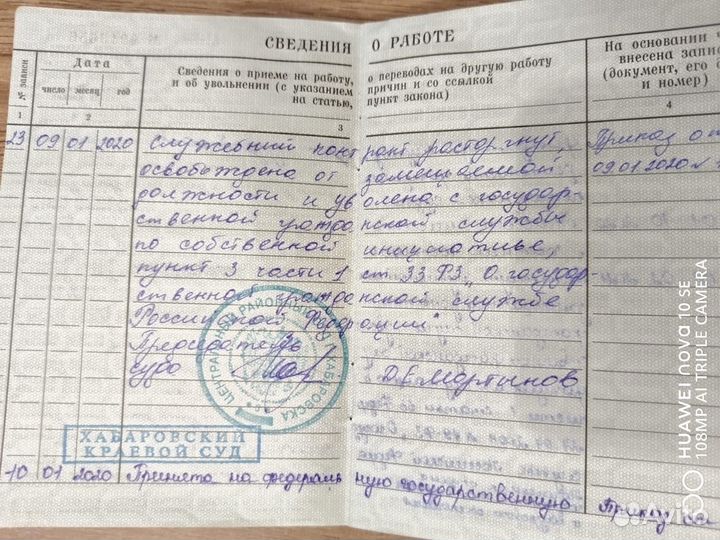 СВЕДЕНИЯ О РАБОТЕ
№ записи
Дата
число месяц год
Сведения о приеме на работу,
и об увольнении (с указанием
на статью,
о переводах на другую работу
причин и со ссылкой
пункт закона)
На основании
внесена
(документ, его
и номер)
1 2 3 4
23 09 01 2020 Служебный контракт расторгнут, Приказ от
освобождена от замещаемой 09.01.2020 №
должности и уволена с государ-
ственной гражданской службы
по собственной инициативе,
пункт 3 части 1 ст. 33 ФЗ "О государ-
ственной гражданской службе
Российской Федерации"
Председатель
суда Д.В. Мартынов
ЦЕНТРАЛЬНЫЙ РАЙОННЫЙ СУД Г. ХАБАРОВСКА
ХАБАРОВСКИЙ
КРАЕВОЙ СУД
10 01 2020 Принята на федеральную государственную Приказ
HUAWEI nova 10 SE
108MP AI TRIPLE CAMERA
Avito